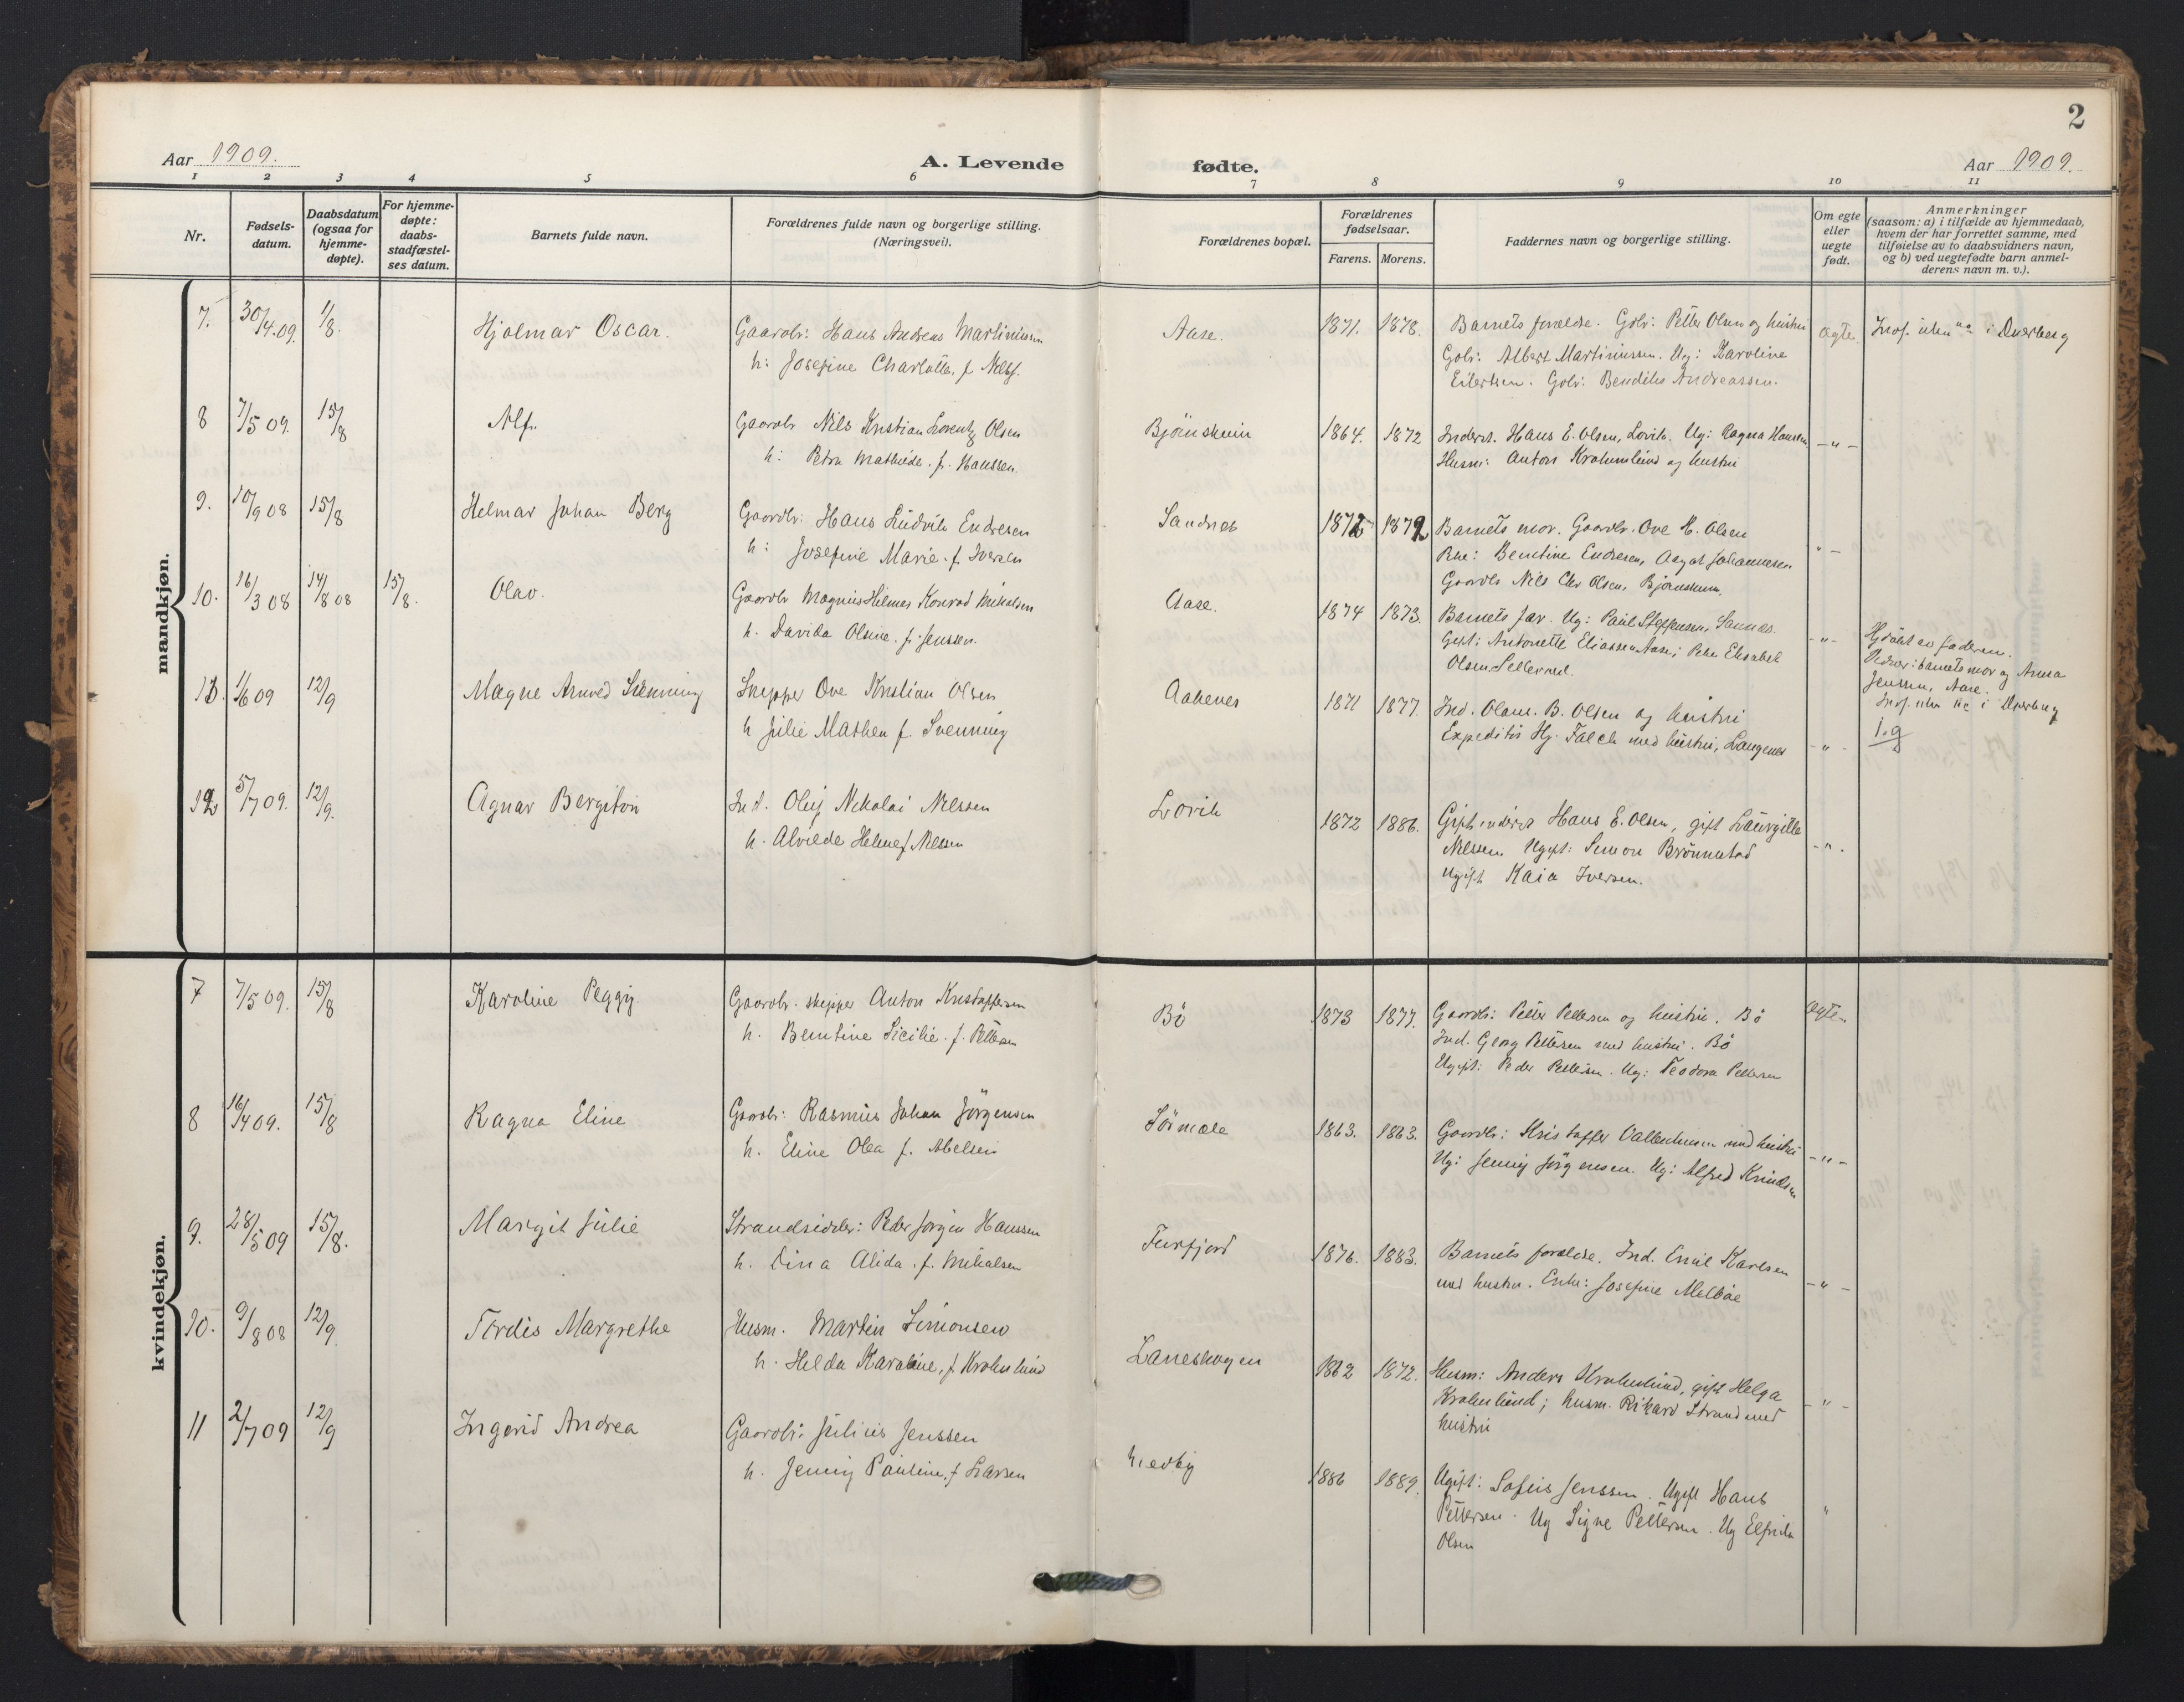 2
Aar 1909.
A. Levende
fødte.
Aar 1909.
1 2 3 4 5 6 7 8 9 10 11
Nr.
Fødsels-
datum.
Daabsdatum
(ogsaa for
hjemme-
døpte).
For hjemme-
døpte:
daabs-
stadfæstel-
ses datum.
Barnets fulde navn.
Forældrenes fulde navn og borgerlige stilling.
(Næringsvei).
Forældrenes bopæl.
Forældrenes
fødselsaar.
Farens. Morens.
Faddernes navn og borgerlige stilling.
Om egte
eller
uegte
født.
Anmerkninger
(saasom: a) i tilfælde av hjemmedaab,
hvem der har forrettet samme, med
tilføielse av to daabsvidners navn,
og b) ved uegtefødte barn anmel-
derens navn m. v.).
mandkjøn.
7. 30/4.09. 1/8. Hjalmar Oscar. Gaardbr: Hans Andreas Martinussen Aase. 1871. 1878. Barnets forældre. Gbr: Petter Olsen og hustru Egte.
h: Josefine Charlotte, f. Gbr: Albert Martinussen. Ug: Karoline
Eilertsen. Gbr: Andreassen.
i Dverberg
8 7/5 09. 15/8 Alf. Gaardbr Nils Kristian Lorentz Olsen Bjørnskinn 1864. 1872 Inderst. Hans E. Olsen, Lovik. Ug: Ragna Hansen -"-
h: Petra Mathilde. f. Hanssen. Husm: Anton Krohnlund og hustru
9. 10/9 08 15/8 Helmar Johan Berg Gaardbr: Hans Ludvik Endresen Sandnes 1872 1879 Barnets mor. Gaardbr. Ove H. Olsen "-
h: Josefine Marie f. Iversen Bentine Endresen, Johannesen
Gaardbr Nils Chr Olsen, Bjørnskinn.
10. 16/3 08 14/8 08 15/8. Olav. Gaardbr Magnus Hilmar Konrad Mikalsen Aase. 1874 1873. Barnets far. Ug: Paul Steffensen, Sannes. -"-
h. Davida Olsine. f. Jenssen. Gift: Antonette Eliassen Aase; Elisabet
Olsen,
Hjdøbt av faderen.
Vidner: barnets mor og Anna
Jenssen, Aase.
i Dverberg
11. 1/6 09 12/9 Magne Arnved Svenning Skipper Ove Kristian Olsen Aakenes 1871 1877. Ind. Olaus. B. Olsen og hustru
h Julie Mathea f. Svenning Expeditør Hj. Falch med hustru, Langenes -"-
12 5/7 09. 12/9. Agnar Bergiton Ind. Oluf Nikolai Nilssen Lovik 1872 1886. Gift inderst Hans E. Olsen, gift
h. Alvilde Helene f. Nilssen Nilssen Ugift: Simon Brønnstad -"-
Ugift Kaia Iversen.
kvindekjøn.
7 7/5 09. 15/8 Karoline Peggy Gaardbr. skipper Anton Kristoffersen Bø 1873 1877. Gaardbr: Petter Pettersen og hustru. Bø Egte
h. Bentine Sicilie. f. Pettersen Ind. Georg Pettersen med hustru. Bø
Ugift: Peder Pettersen. Ug: Teodora Pettersen
8 16/4 09. 15/8 Ragna Eline Gaardbr: Rasmus Johan Jørgensen Sørmæle 1863. 1863. Gaardbr: Kristoffer med hustru -"-
h. Eline Olea f. Abelsen Ug: Jenny Jørgensen. Ug: Alfred Knudsen
9. 28/5 09 15/8. Margit Julie Strandsidder: Peder Jørgen Hanssen Forfjord 1876. 1883. Barnets forældre. Ind. Emil Karlsen
h. Dina Alida. f. Mikalsen med hustru. Enke: Josefine Melbøe -"-
10. 9/8 08 12/9. Tordis Margrethe Husm. Martin Simonsen Laneskogen 1862 1872. Husm: Anders Krohnlund, gift Helga
h. Hilda Karoline, f Krohnlund Krohnlund; husm. Rikard Strand med -"-
hustru
11 2/7 09 12/9 Ingerid Andrea Gaardbr: Julius Jenssen Medby 1886 1889. Ugift: Sofus Jenssen. Ugift Hans
h. Jenny Pauline, f Larsen Pettersen. Ug Signe Pettersen. Ug Elfrida "
Olsen